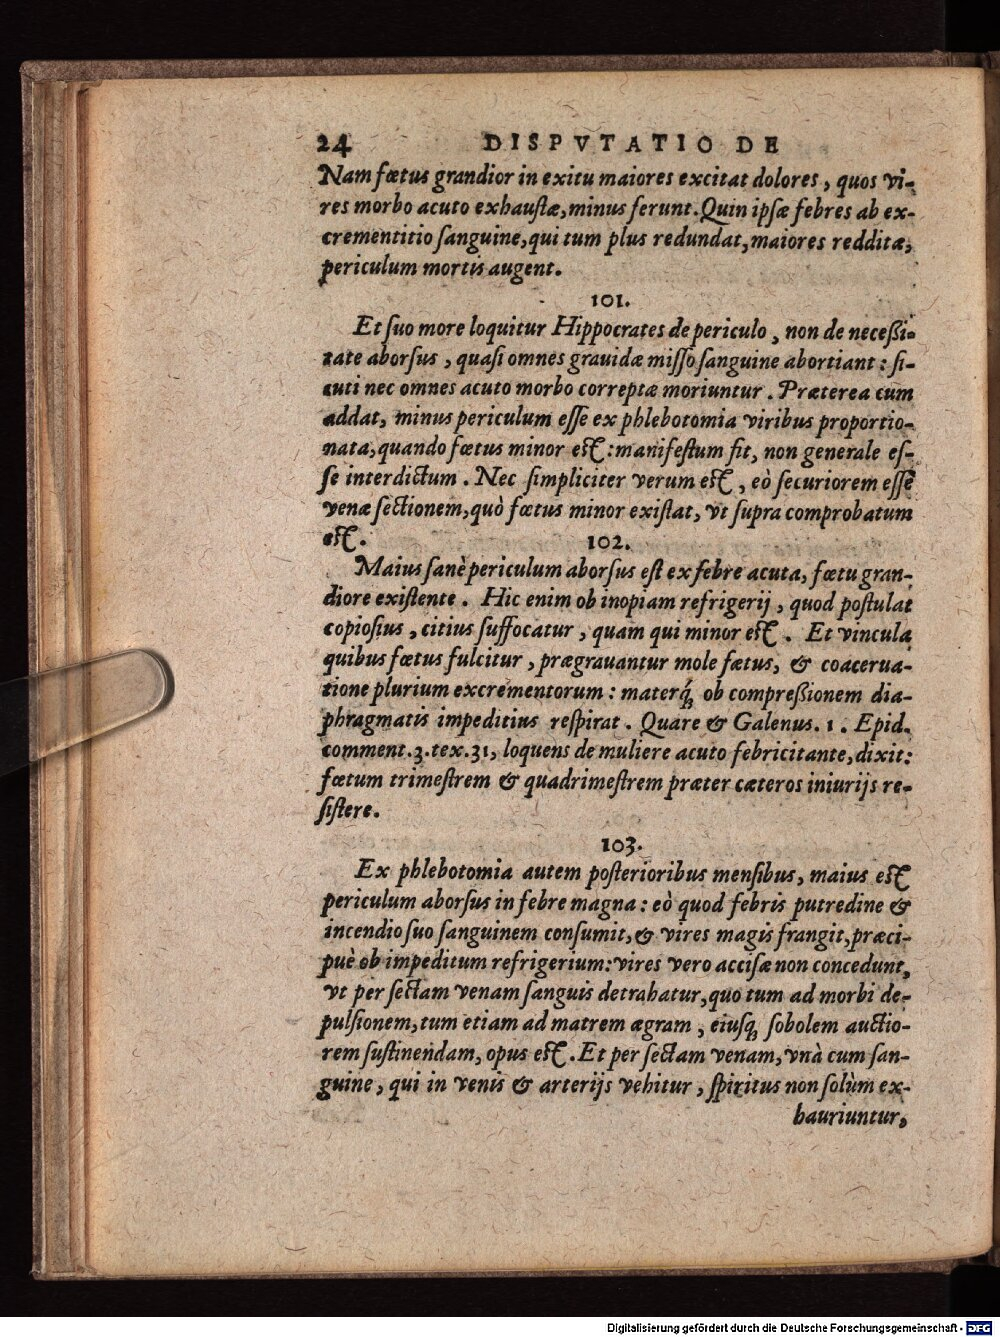 24 DISPVTATIO DE
Nam fœtus grandior in exitu maiores excitat dolores, quos vi-
res morbo acuto exhaustæ, minus ferunt. Quin ipsæ febres ab ex-
crementitio sanguine, qui tum plus redundat, maiores redditæ,
periculum mortis augent.
101.
Et suo more loquitur Hippocrates de periculo, non de necessi-
tate aborsus, quasi omnes grauidæ misso sanguine abortiant: si-
cuti nec omnes acuto morbo correptæ moriuntur. Præterea cum
addat, minus periculum esse ex phlebotomia viribus proportio-
nata, quando fœtus minor est: manifestum fit, non generale es-
se interdictum. Nec simpliciter verum est, eò securiorem esse
venæ sectionem, quò fœtus minor existat, vt supra comprobatum
est. 102.
Maius sanè periculum aborsus est ex febre acuta, fœtu gran-
diore existente. Hic enim ob inopiam refrigerij, quod postulat
copiosius, citius suffocatur, quam qui minor est. Et vincula
quibus fœtus fulcitur, prægrauantur mole fætus, & coacerua-
tione plurium excrementorum: materq́ ob compressionem dia-
phragmatis impeditius respirat. Quare & Galenus. 1. Epid.
comment. 3. tex. 31, loquens de muliere acuto febricitante, dixit:
fœtum trimestrem & quadrimestrem præter cæteros iniurijs re-
sistere.
103.
Ex phlebotomia autem posterioribus mensibus, maius est
periculum aborsus in febre magna: eò quod febris putredine &
incendio suo sanguinem consumit, & vires magis frangit, præci-
puè ob impeditum refrigerium: vires vero accisæ non concedunt,
vt per sectam venam sanguis detrahatur, quo tum ad morbi de-
pulsionem, tum etiam ad matrem ægram, eiusq; sobolem auctio-
rem sustinendam, opus est. Et per sectam venam, vnà cum san-
guine, qui in venis & arterijs vehitur, spiritus non solùm ex-
hauriuntur,
Digitalisierung gefördert durch die Deutsche Forschungsgemeinschaft - DFG